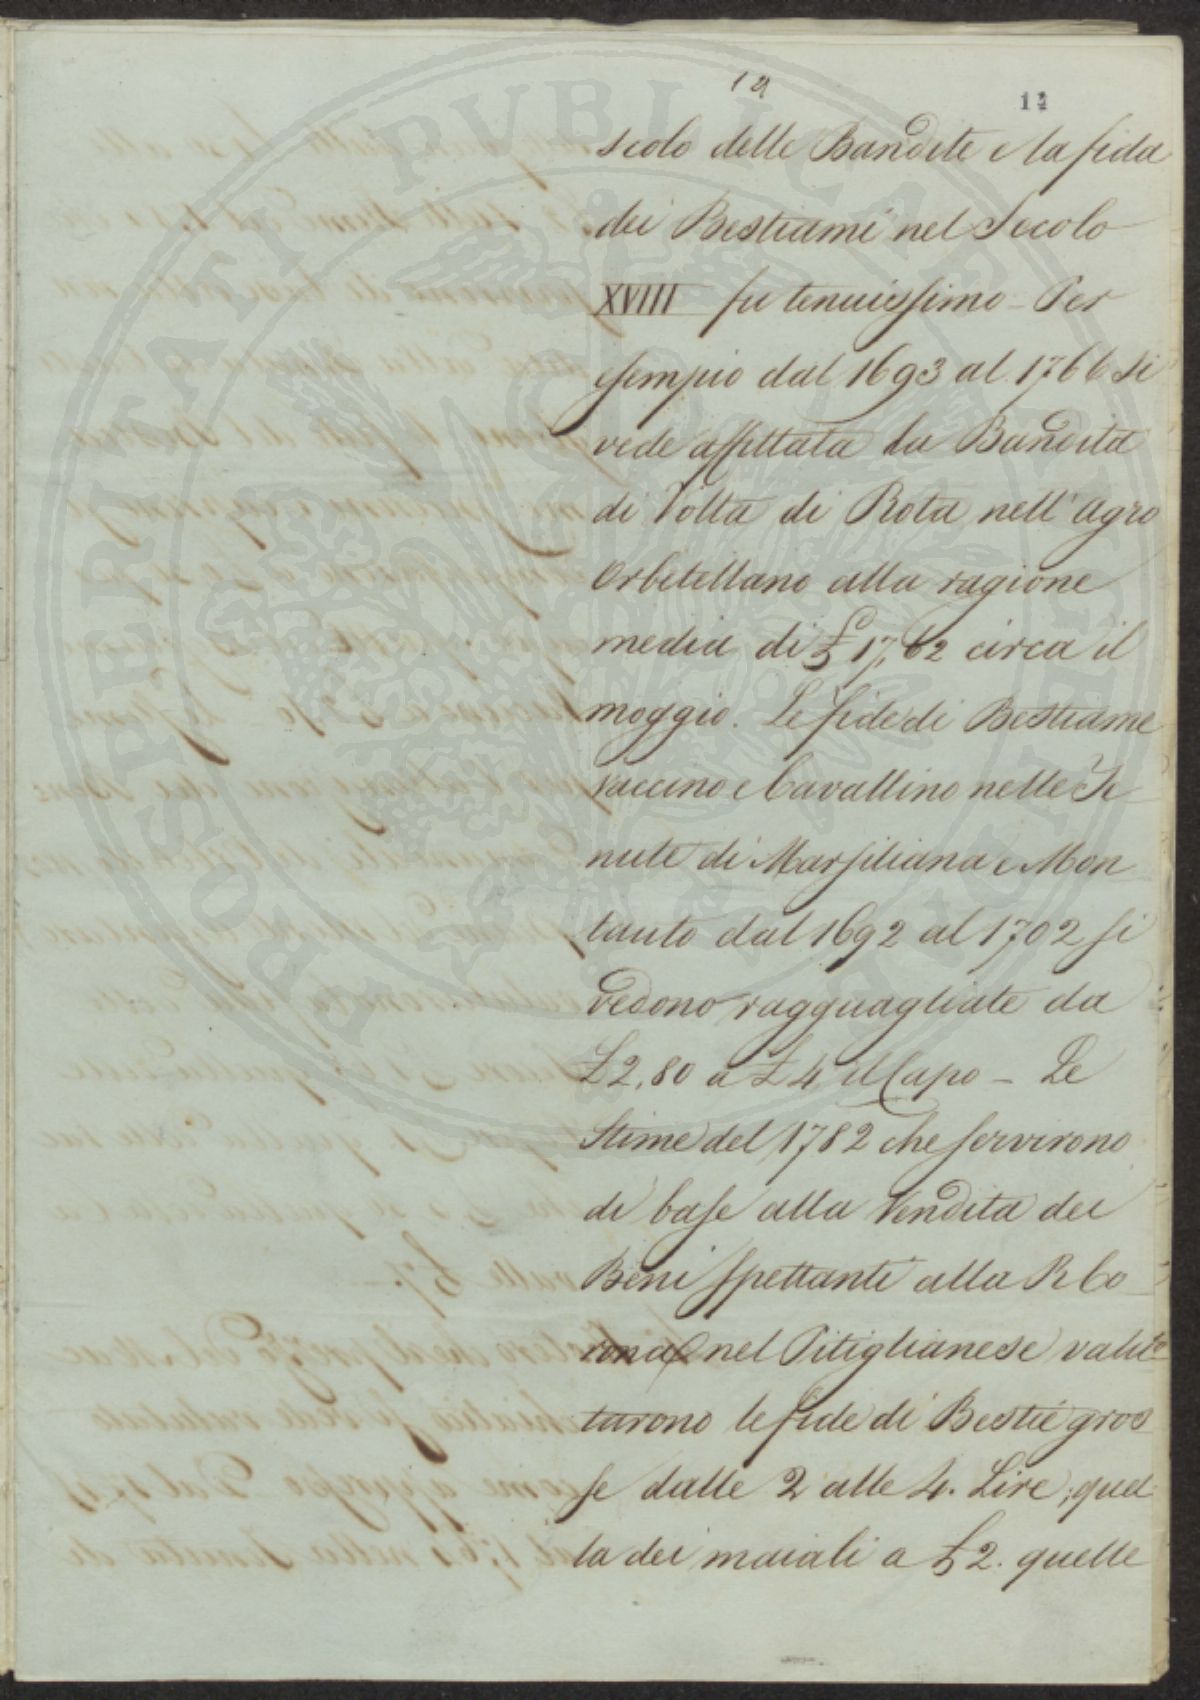 12
14
scolo delle Bandite e la fida
dei Bestiami nel Secolo
XVIII fu tenuissimo - Per
esempio dal 1693 al 1766 si
vede affittata la Bandita
di Volta di Rota nell'Agro
Orbetellano alla ragione
media di £ 17,62 circa il
moggio. Le fide di Bestiame
vaccino e Cavallino nelle Te
nute di Marsiliana e Mon
tauto dal 1692 al 1702 si
vedono ragguagliate da
£ 2,80 a £ 4 il Capo - Le
Stime del 1782 che servirono
di base alla Vendita dei
Beni spettanti alla R. Co
rona nel Pitiglianese valu
tarono le fide di Bestie gros
se dalle 2 alle 4. Lire; quel
la dei maiali a £ 2. quelle
PROSPERITATI PUBLICAE AUGENDAE